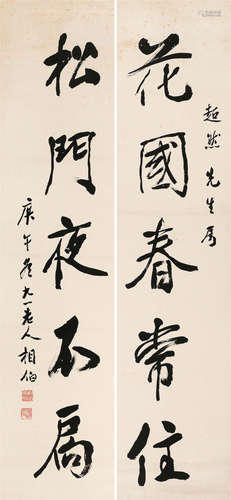 超然先生属
花國春常住
松門夜不扃
庚午冬九一老人相伯